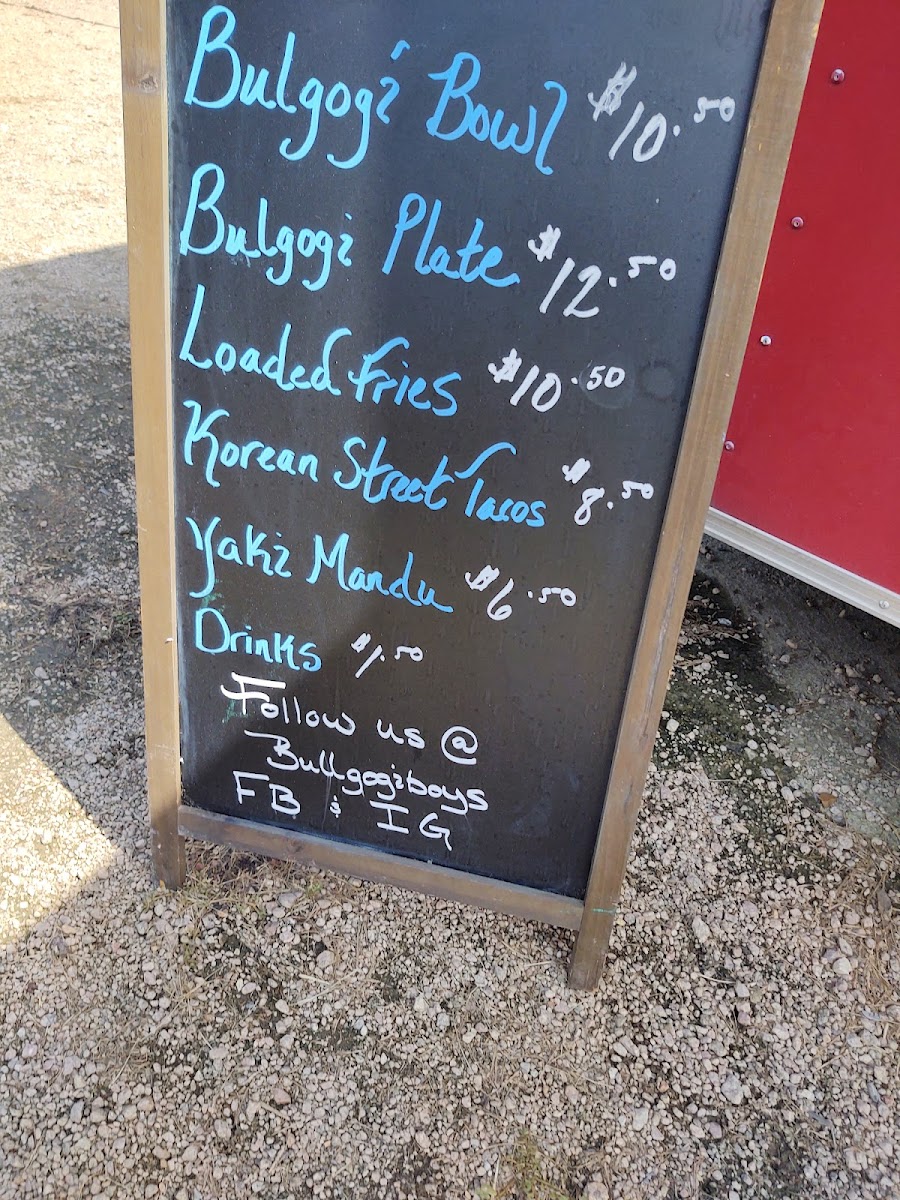 Bulgogi Bowl $10.50
Bulgogi Plate $12.50
Loaded Fries $10.50
Korean Street Tacos $8.50
Yaki Mandu $6.50
Drinks $1.50
Follow us @
Bullgogiboys
FB & IG